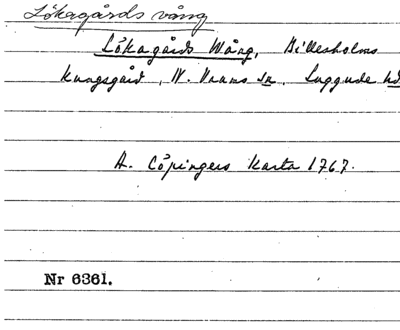 Lökagårds vång
Lökagårds Wång, Billesholms
kungsgård, N. Vrams sn. Luggude hd
A. Cöpingers karta 1767.
Nr 6361.